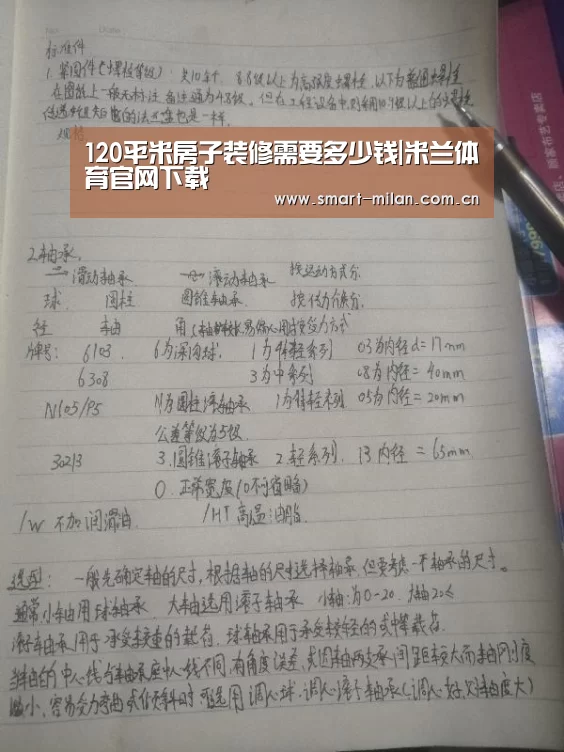 标准件
1. 紧固件(螺栓等级): 共10余个, 8.8级以上为高强度螺栓, 以下为普通螺栓
在图纸上一般无标注 普通为4.8级。但在工程设备中则采用10.9级以上的
也是一样。
120平米房子装修需要多少钱|米兰体
育官网下载
www.smart-milan.com.cn
2.轴承。
滑动轴承 滚动轴承 按运动方式分
球 圆柱 圆锥轴承 按传力介质分
径 轴 角 受力方式
牌号: 6103. 6为深沟球. 1为特轻系列 03为内径d=17mm
6308 3为中系列 08为内径=40mm
N105/P5 N为圆柱滚轴承 1为特轻系列 05为内径=20mm
公差等级为5级
30213 3.圆锥滚子轴承 2.轻系列. 13内径=65mm
0.正常宽度(0不可省略)
/W 不加润滑油 /HT 高温油脂
选型: 一般先确定轴的尺寸, 根据轴的尺寸选择轴承, 但要考虑一下轴承的尺寸。
通常小轴用球轴承 大轴选用滚子轴承 小轴:为0-20.
滚子轴承用于承受较重的载荷. 球轴承用于承受较轻的或中等载荷.
当轴的中心线与轴承座中心线不同, 有角度误差, 或因轴两支承间距较大而轴刚度
小, 容易受力弯曲或倾斜时 可选用调心球, 调心滚子轴承